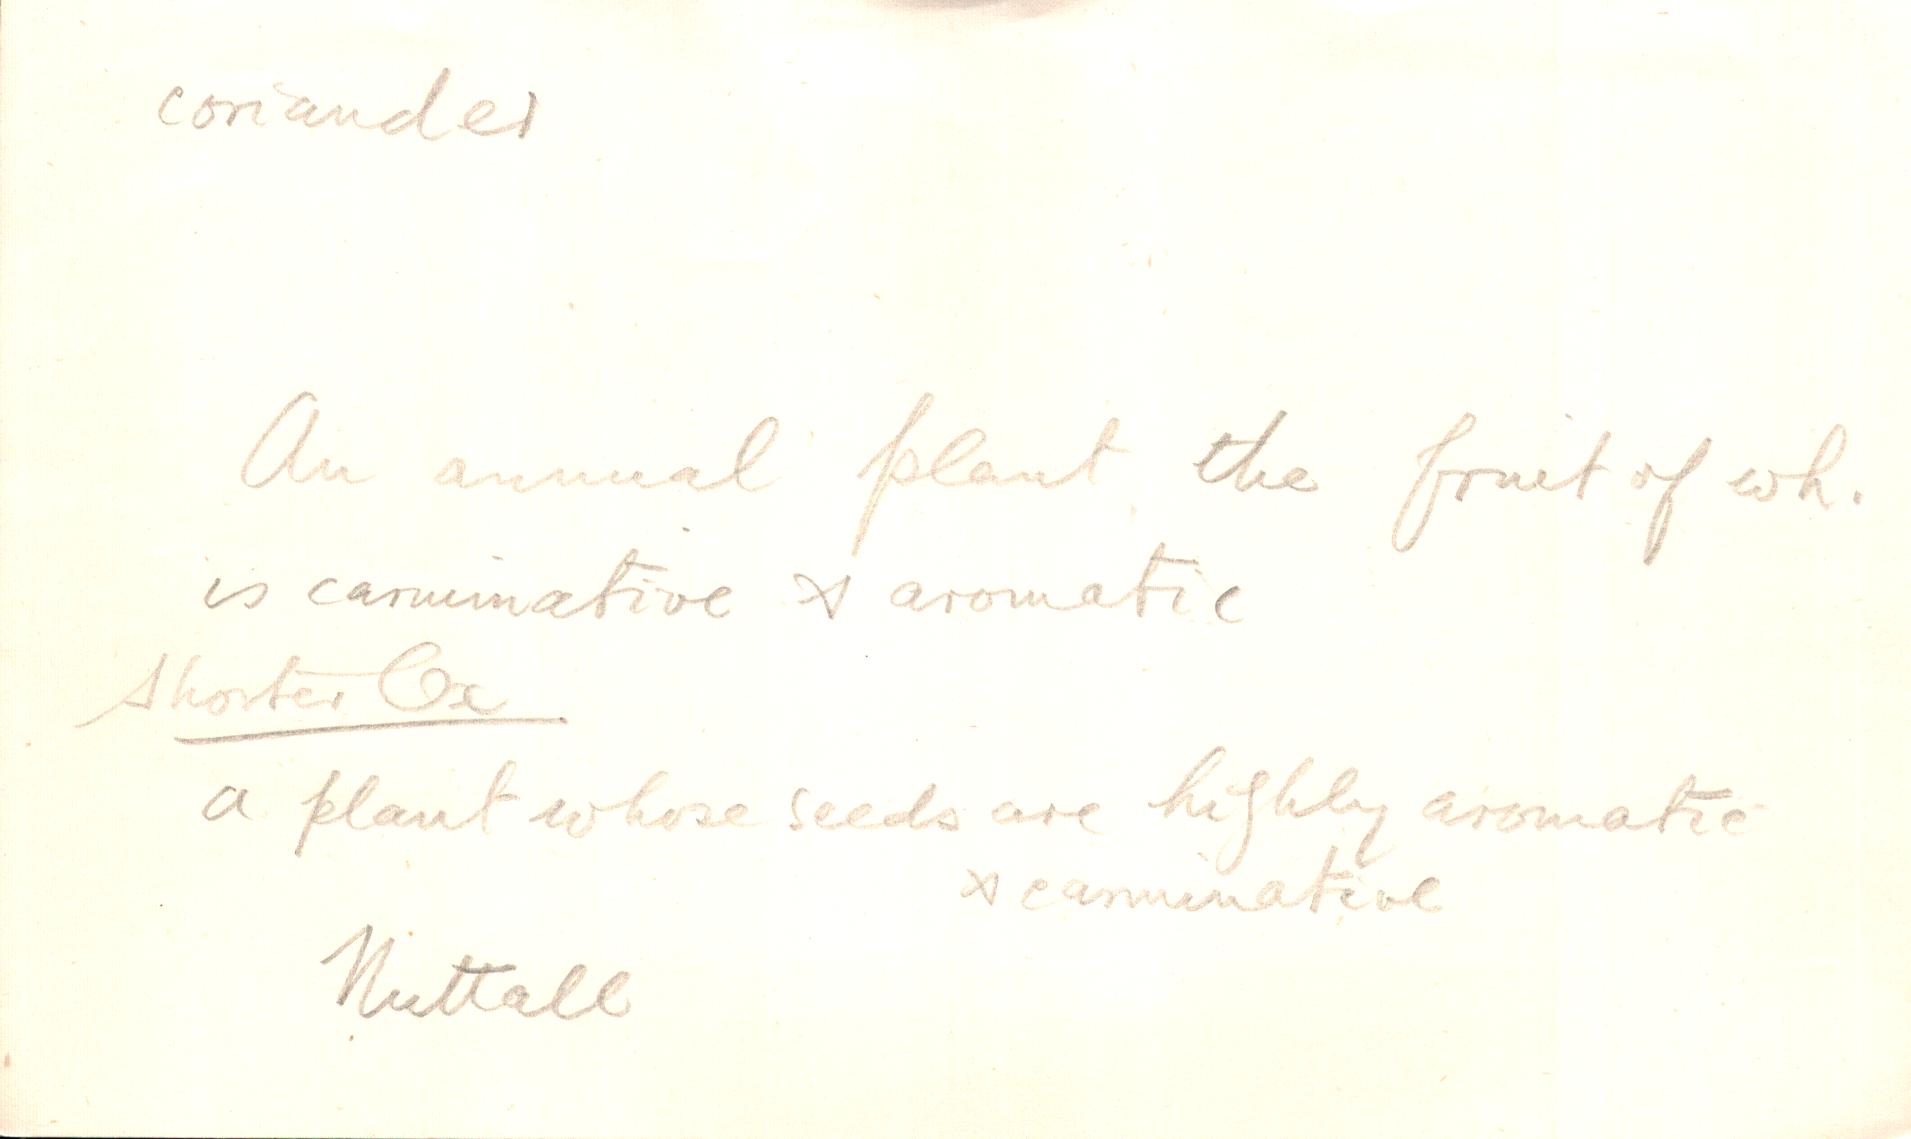 coriander
An annual plant the fruit of wh.
is carminative & aromatic
Shorter Ox
a plant whose seeds are highly aromatic
& carminative
Nuttall